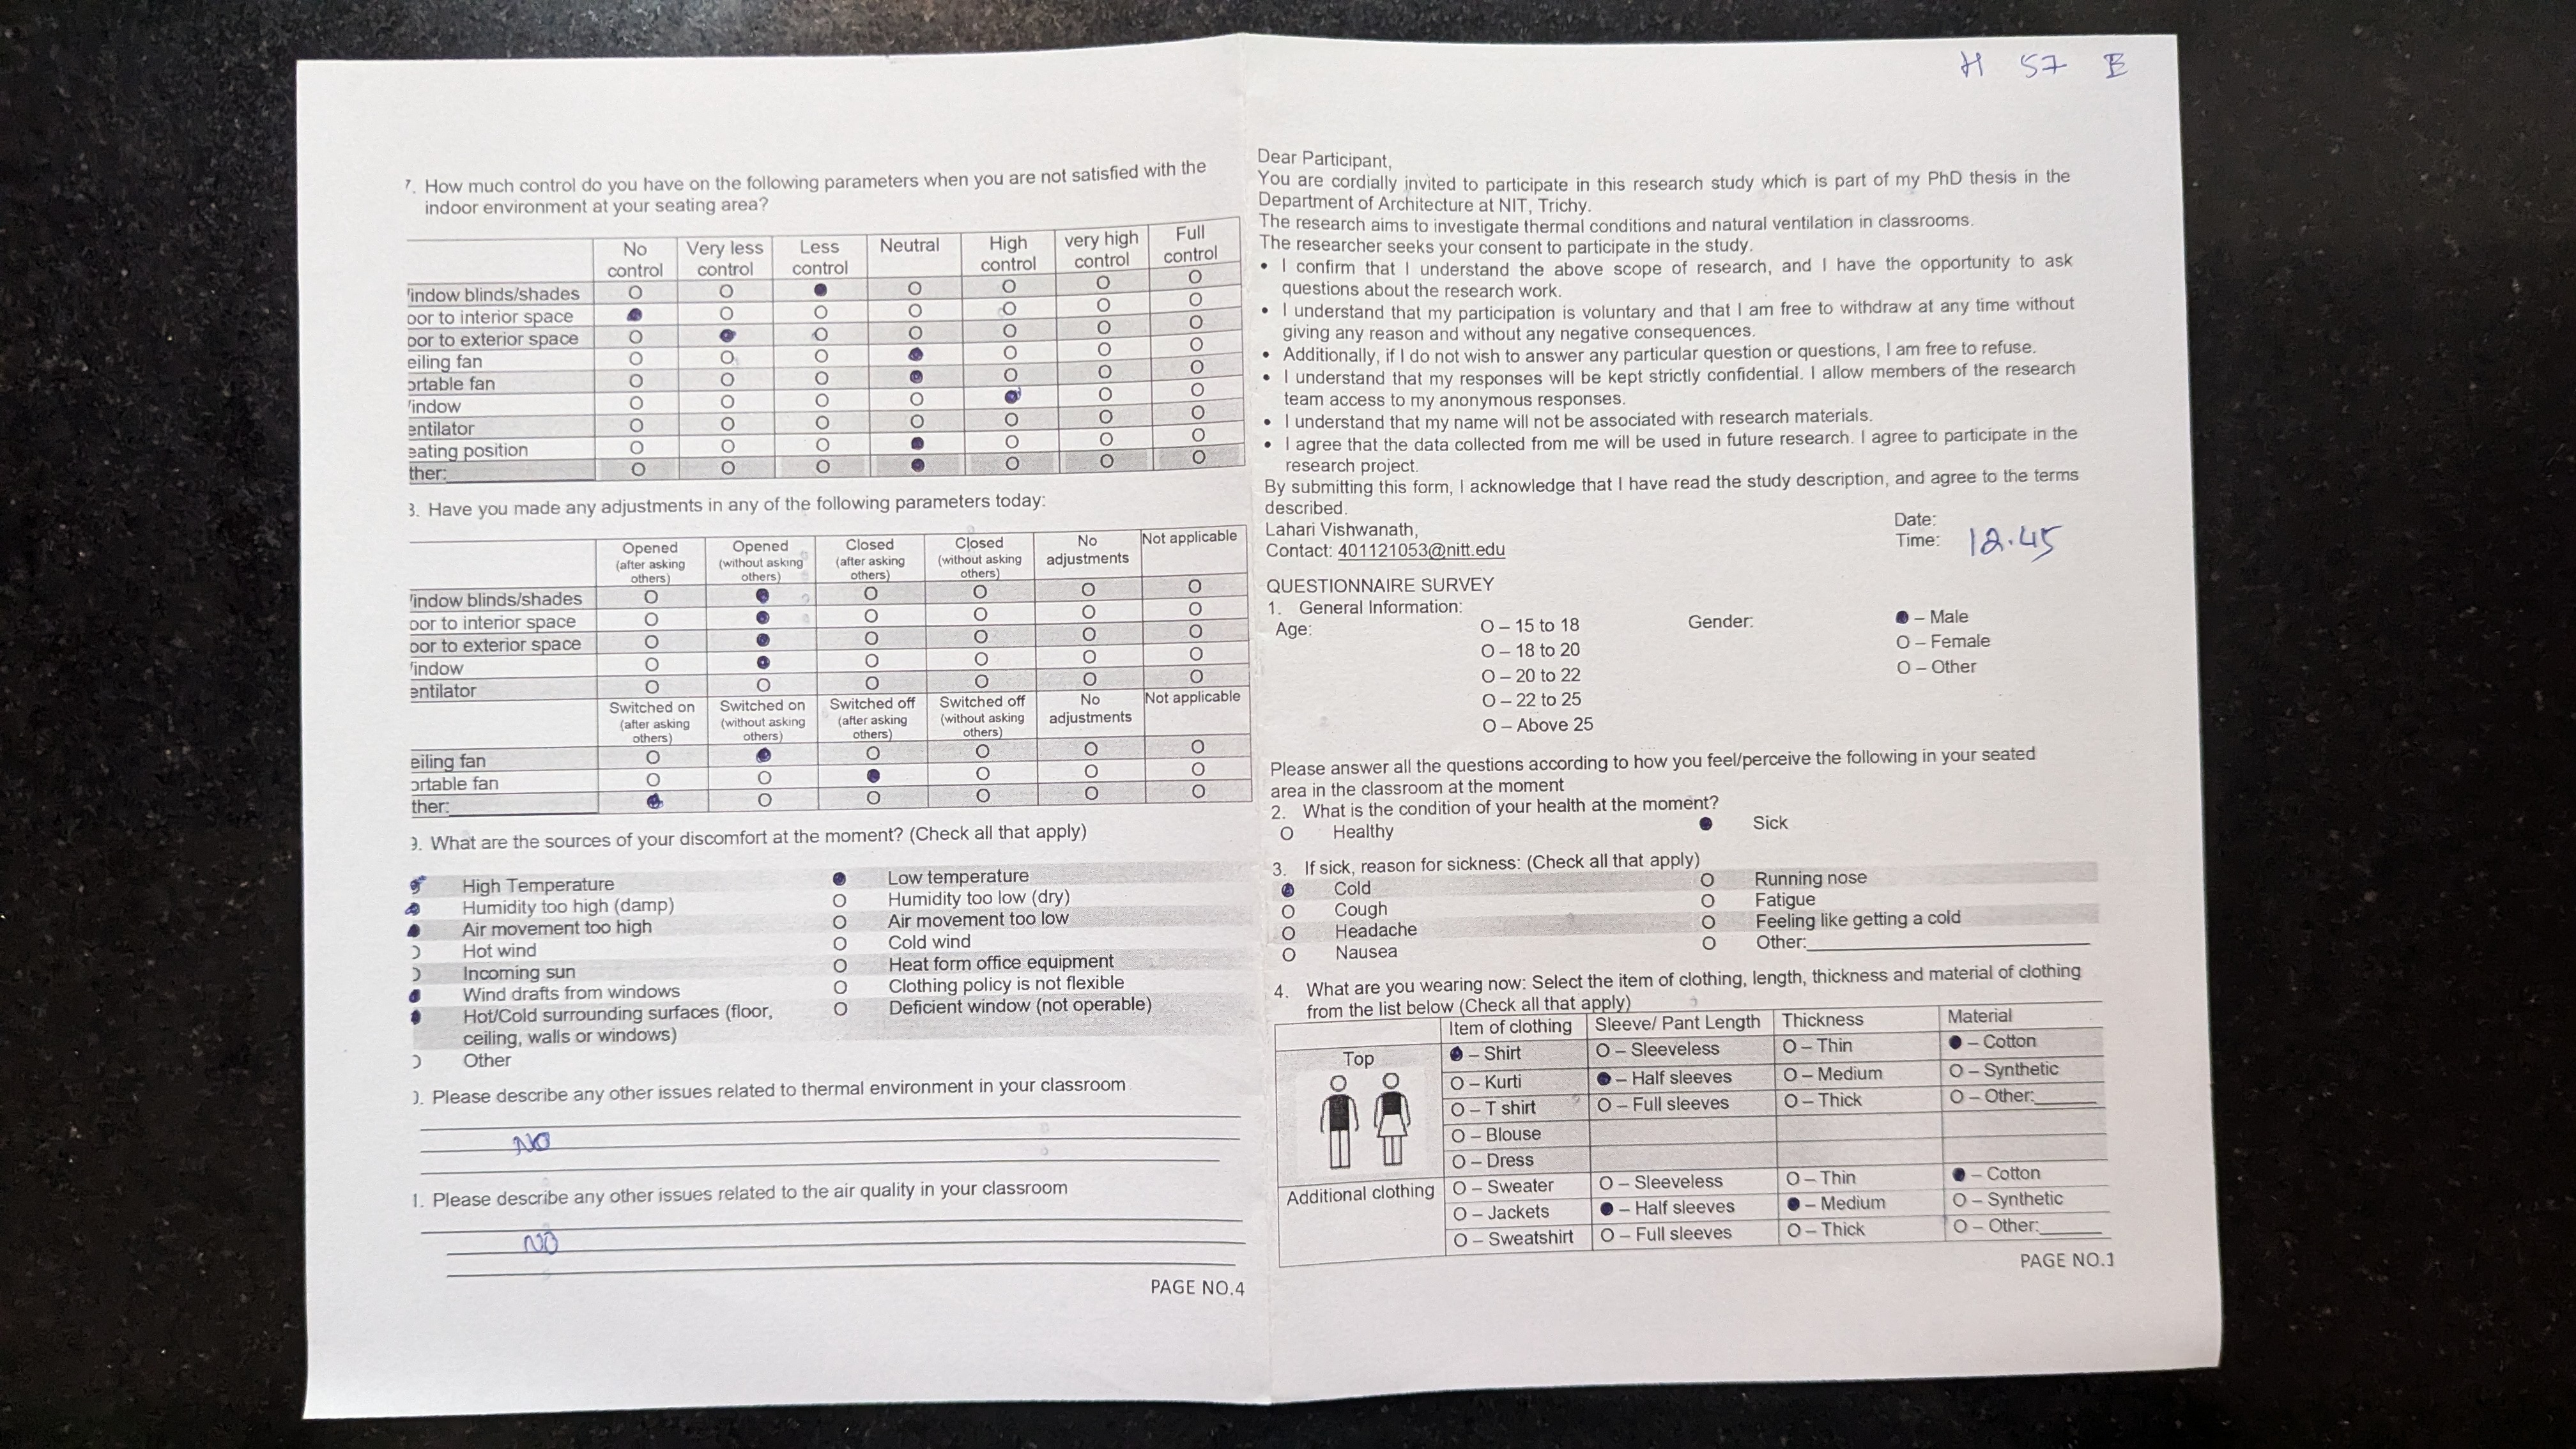 7. How much control do you have on the following parameters when you are not satisfied with the
indoor environment at your seating area?
No control Very less control Less control Neutral High control very high control Full control
indow blinds/shades O O ● O O O O
oor to interior space ● O O O O O O
oor to exterior space O ● O O O O O
eiling fan O O O ● O O O
ortable fan O O O ● O O O
indow O O O O ● O O
entilator O O O O O O O
eating position O O O ● O O O
ther: O O O ● O O O
Have you made any adjustments in any of the following parameters today:
Opened (after asking others) Opened (without asking others) Closed (after asking others) Closed (without asking others) No adjustments Not applicable
indow blinds/shades O ● O O O O
oor to interior space O ● O O O O
oor to exterior space O ● O O O O
indow O ● O O O O
entilator O O O O O O
Switched on (after asking others) Switched on (without asking others) Switched off (after asking others) Switched off (without asking others) No adjustments Not applicable
eiling fan O ● O O O O
ortable fan O O ● O O O
ther: ● O O O O O
What are the sources of your discomfort at the moment? (Check all that apply)
● High Temperature ● Low temperature
● Humidity too high (damp) O Humidity too low (dry)
● Air movement too high O Air movement too low
Hot wind O Cold wind
Incoming sun O Heat form office equipment
● Wind drafts from windows O Clothing policy is not flexible
● Hot/Cold surrounding surfaces (floor, O Deficient window (not operable)
ceiling, walls or windows)
Other
Please describe any other issues related to thermal environment in your classroom
NO
1. Please describe any other issues related to the air quality in your classroom
NO
PAGE NO.4
H 57 E
Dear Participant,
You are cordially invited to participate in this research study which is part of my PhD thesis in the
Department of Architecture at NIT, Trichy.
The research aims to investigate thermal conditions and natural ventilation in classrooms.
The researcher seeks your consent to participate in the study.
• I confirm that I understand the above scope of research, and I have the opportunity to ask
questions about the research work.
• I understand that my participation is voluntary and that I am free to withdraw at any time without
giving any reason and without any negative consequences.
• Additionally, if I do not wish to answer any particular question or questions, I am free to refuse.
• I understand that my responses will be kept strictly confidential. I allow members of the research
team access to my anonymous responses.
• I understand that my name will not be associated with research materials.
• I agree that the data collected from me will be used in future research. I agree to participate in the
research project.
By submitting this form, I acknowledge that I have read the study description, and agree to the terms
described.
Lahari Vishwanath, Date:
Contact: 401121053@nitt.edu Time: 12.45
QUESTIONNAIRE SURVEY
1. General Information:
Age: O – 15 to 18 Gender: ● – Male
O – 18 to 20 O – Female
O – 20 to 22 O – Other
O – 22 to 25
O – Above 25
Please answer all the questions according to how you feel/perceive the following in your seated
area in the classroom at the moment
2. What is the condition of your health at the moment?
O Healthy ● Sick
3. If sick, reason for sickness: (Check all that apply)
● Cold O Running nose
O Cough O Fatigue
O Headache O Feeling like getting a cold
O Nausea O Other:
4. What are you wearing now: Select the item of clothing, length, thickness and material of clothing
from the list below (Check all that apply)
Item of clothing Sleeve/ Pant Length Thickness Material
Top ● – Shirt O – Sleeveless O – Thin ● – Cotton
O – Kurti ● – Half sleeves O – Medium O – Synthetic
O – T shirt O – Full sleeves O – Thick O – Other:
O – Blouse
O – Dress
Additional clothing O – Sweater O – Sleeveless O – Thin ● – Cotton
O – Jackets ● – Half sleeves ● – Medium O – Synthetic
O – Sweatshirt O – Full sleeves O – Thick O – Other:
PAGE NO.1